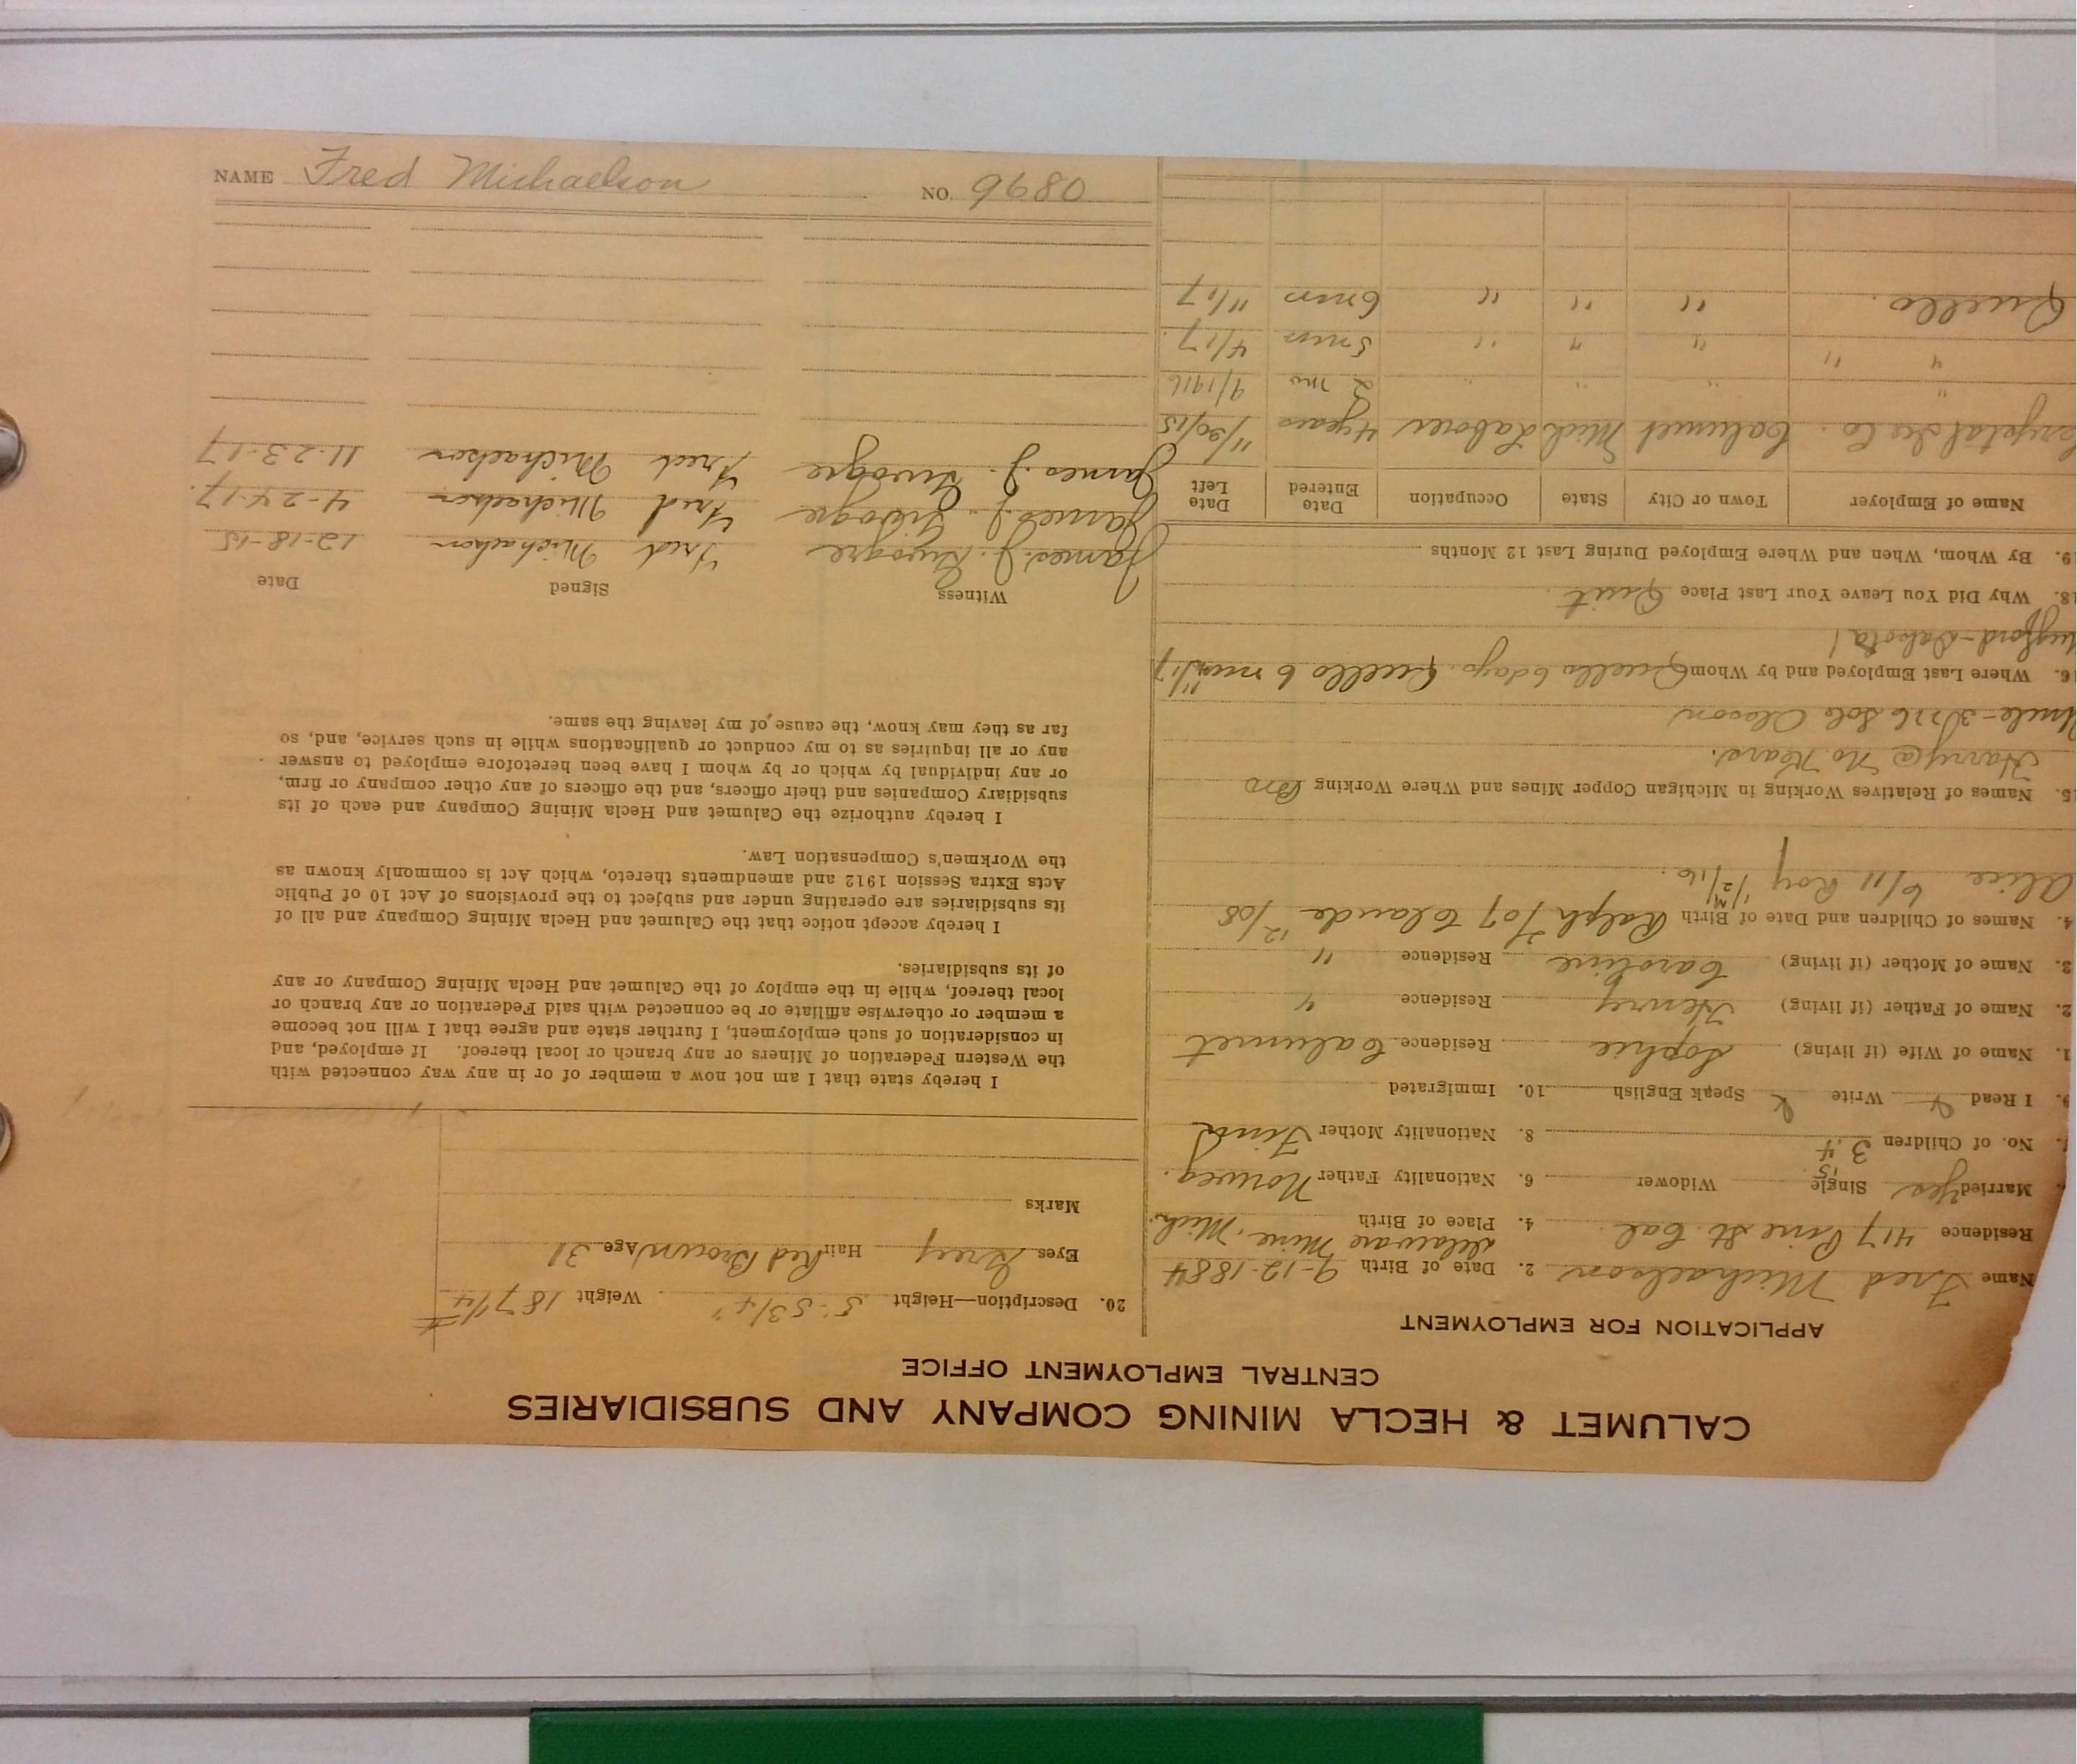 CALUMET & HECLA MINING COMPANY AND SUBSIDIARIES
CENTRAL EMPLOYMENT OFFICE
APPLICATION FOR EMPLOYMENT
Name Fred Michaelson 2. Date of Birth 9-12-1884
Residence 417 Pine St. Cal. 4. Place of Birth Delaware Mine, Mich.
Married Yes Single Widower 6. Nationality Father Norweg.
No. of Children 3 4 8. Nationality Mother Finn
9. I Read Write Speak English 10. Immigrated
1. Name of Wife (if living) Sophie Residence Calumet
2. Name of Father (if living) Henry Residence "
3. Name of Mother (if living) Caroline Residence "
4. Names of Children and Date of Birth Ralph /07 Claude 12/08
Alice 6/11 Roy 1/2/16.
5. Names of Relatives Working in Michigan Copper Mines and Where Working Bro
Harry @ No Kears.
Uncle-
6. Where Last Employed and by Whom Quello 6 days. Quello 6 mos 11/17
18. Why Did You Leave Your Last Place Quit.
19. By Whom, When and Where Employed During Last 12 Months
Name of Employer Town or City State Occupation Date Entered Date Left
Crystal Ice Co. Calumet Mich Laborer 4 years 11/30/15
" " " " 2 mo 9/1916
" " " " " 5 mos 4/17.
Quello. " " " 6 mos 11/17
20. Description—Height 5'-5 3/4" Weight 187 1/4 #
Eyes Grey Hair Red Brown Age 31
Marks
I hereby state that I am not now a member of or in any way connected with
the Western Federation of Miners or any branch or local thereof. If employed, and
in consideration of such employment, I further state and agree that I will not become
a member or otherwise affiliate or be connected with said Federation or any branch or
local thereof, while in the employ of the Calumet and Hecla Mining Company or any
of its subsidiaries.
I hereby accept notice that the Calumet and Hecla Mining Company and all of
its subsidiaries are operating under and subject to the provisions of Act 10 of Public
Acts Extra Session 1912 and amendments thereto, which Act is commonly known as
the Workmen's Compensation Law.
I hereby authorize the Calumet and Hecla Mining Company and each of its
subsidiary Companies and their officers, and the officers of any other company or firm,
or any individual by which or by whom I have been heretofore employed to answer
any or all inquiries as to my conduct or qualifications while in such service, and, so
far as they may know, the cause of my leaving the same.
Witness Signed Date
James J. Fred Michaelson 12-18-15
James J. Fred Michaelson 4-24-17.
James J. Fred Michaelson 11-23-17
NAME Fred Michaelson NO. 9680